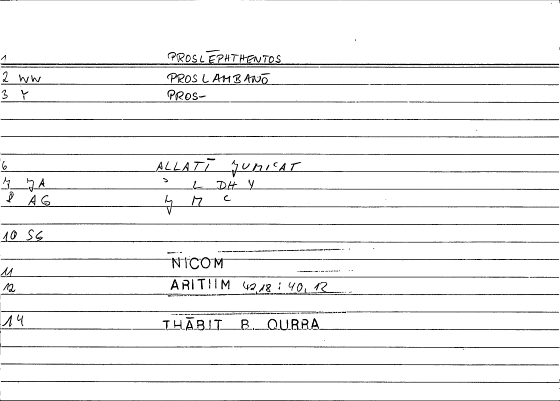 1 PROSLĒPHTHENTOS
2 WW PROSLAMBANŌ
3 Y PROS-
6 ALLATĪ ǦUMICAT
ǦA ʾ L DH Y
8 AG Ǧ M C
10 SG
11 NICOM
12 ARITIIM 42,18 : 40,12
14 THĀBIT B. QURRA